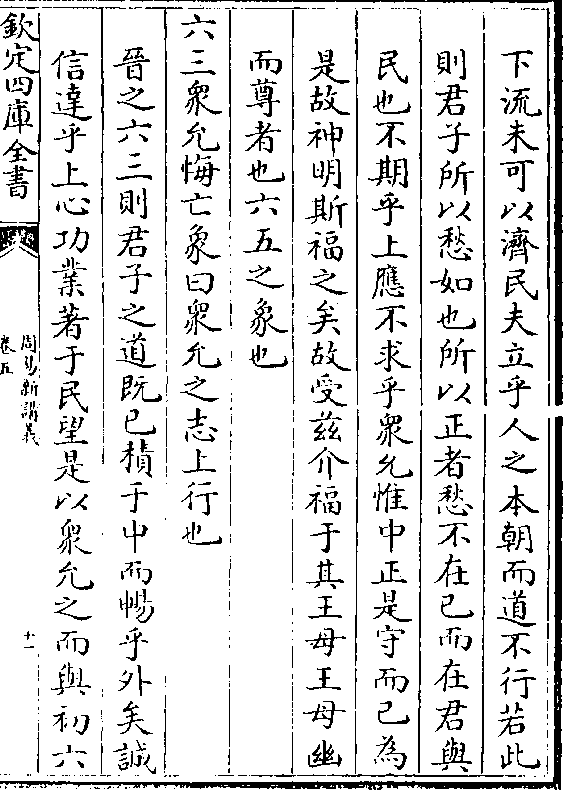 下流未可以濟民夫立乎人之本朝而道不行若此
則君子所以愁如也所以正者愁不在已而在君與
民也不期乎上應不求乎衆允惟中正是守而已為
是故神明斯福之矣故受兹介福于其王母王母幽
而尊者也六五之象也
六三衆允悔亡象曰衆允之志上行也
晉之六三則君子之道既已積于中而暢乎外矣誠
信達乎上心功業著于民望是以衆允之而與初六
欽定四庫全書
周易新講義
卷五
十一